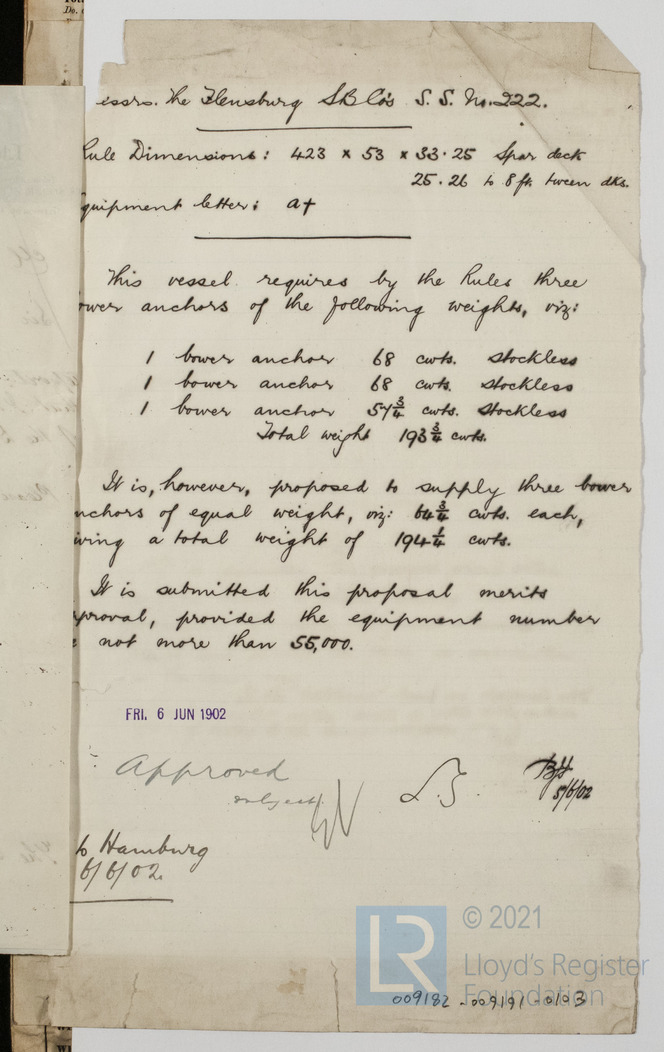 essrs. The Flensburg SB Co's S.S. No. 222.
Rule Dimensions: 423 x 53 x 33.25 Spar deck
25.26 to 8 ft. tween dks.
quipment letter: a+
This vessel requires by the Rules three
ower anchors of the following weights, viz:
1 bower anchor 68 cwts. stockless
1 bower anchor 68 cwts. stockless
1 bower anchor 57¾ cwts. stockless
Total weight 193¾ cwts.
It is, however, proposed to supply three bower
nchors of equal weight, viz: 64¾ cwts. each,
iving a total weight of 194¼ cwts.
It is submitted this proposal merits
pproval, provided the equipment number
e not more than 55,000.
FRI. 6 JUN 1902
Approved
subject
5/6/02
to Hamburg
6/6/02.
LR
© 2021
Lloyd's Register
Foundation
009182-009191-0103